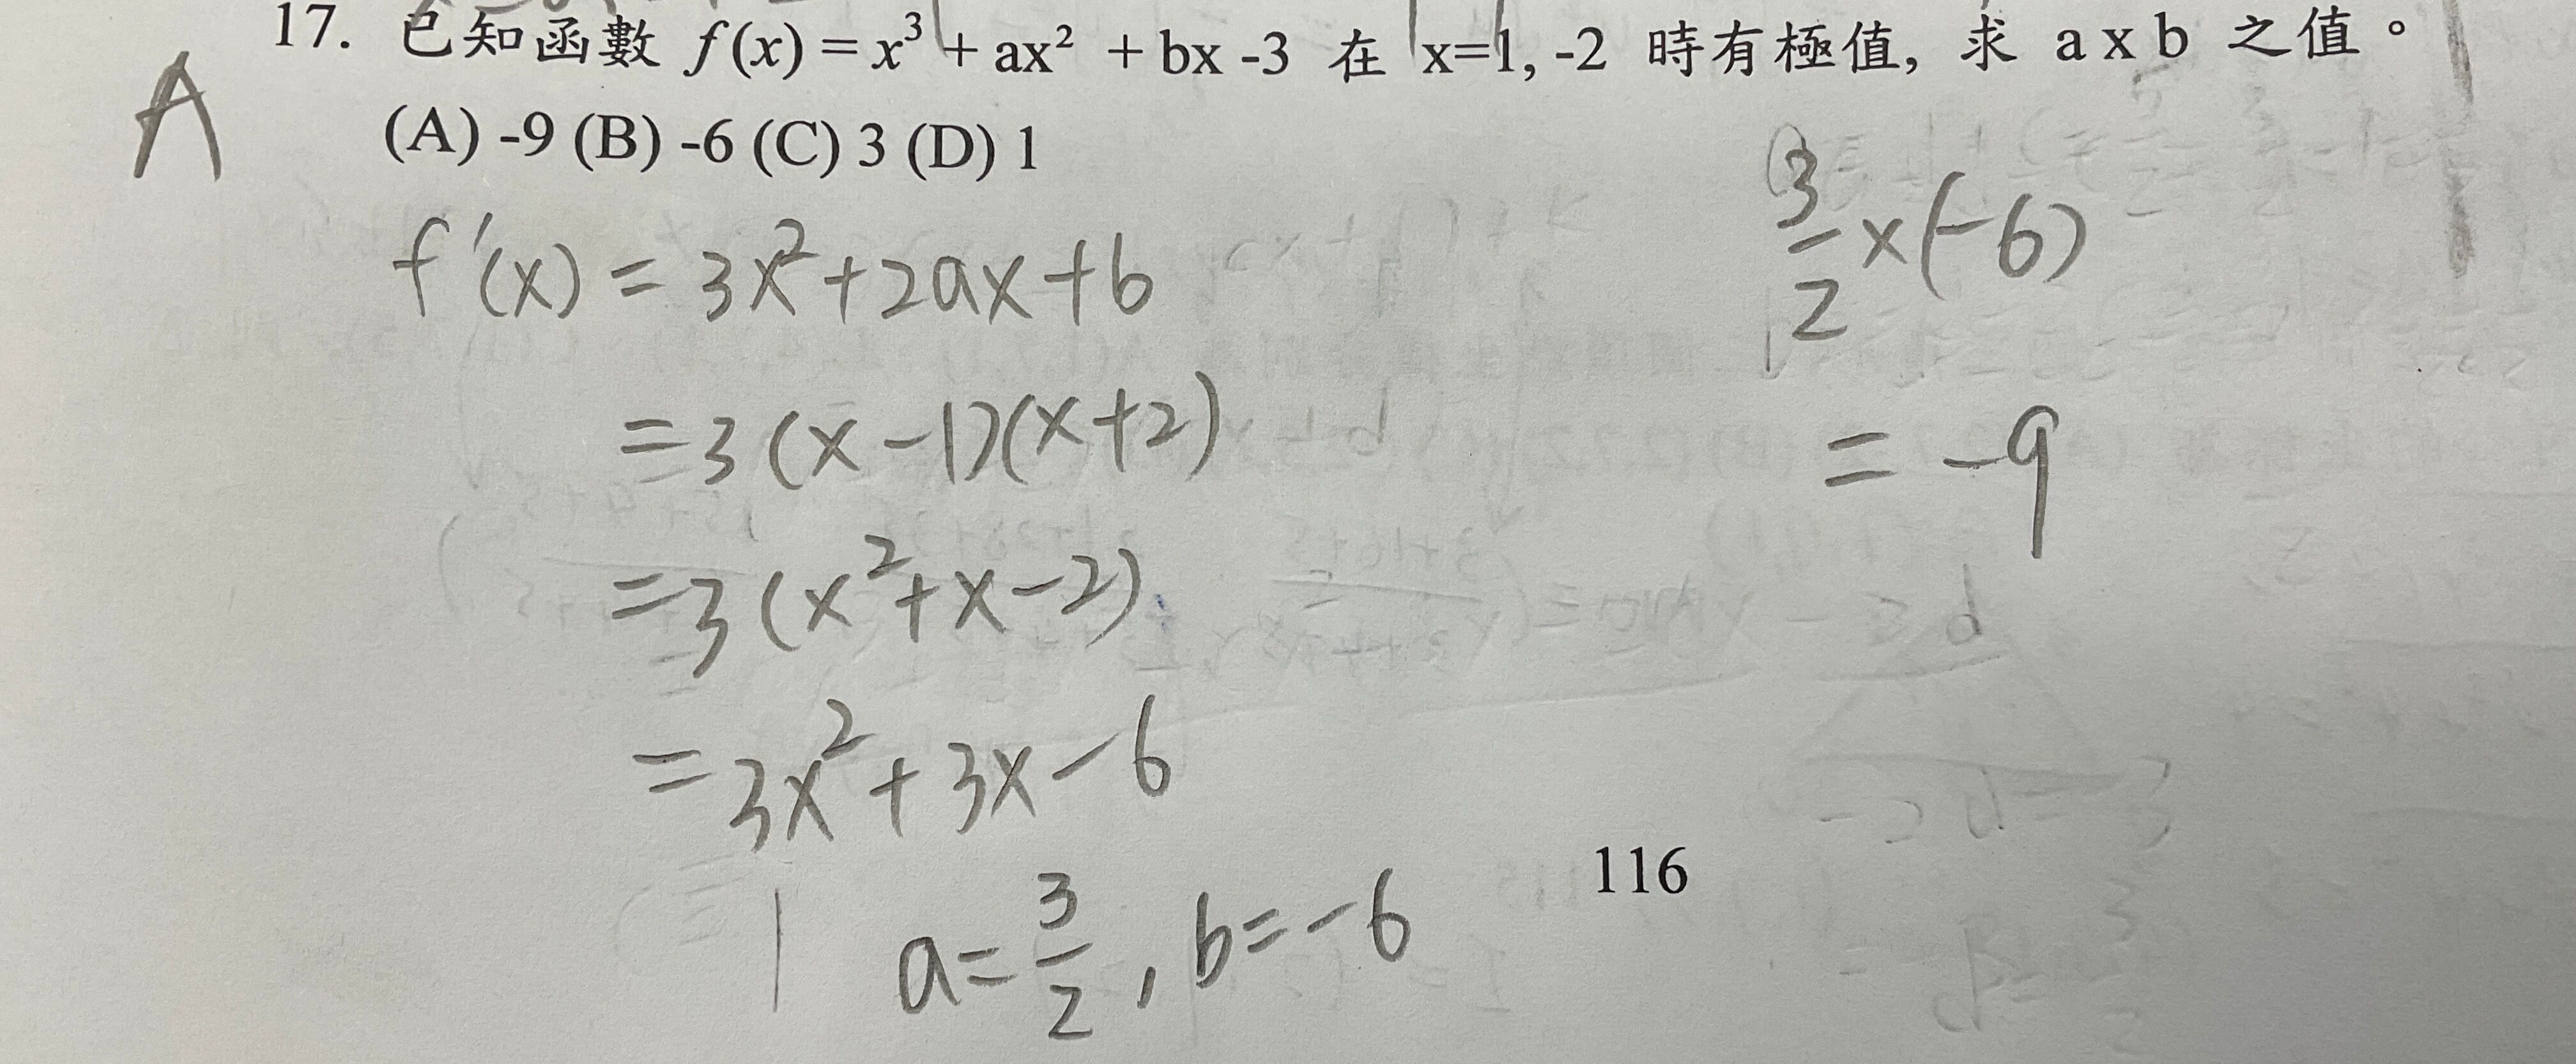 17. 已知函數 f(x) = x³ + ax² + bx -3 在 x=1, -2 時有極值, 求 a x b 之值。
A
(A) -9 (B) -6 (C) 3 (D) 1
f'(x) = 3x²+2ax+b
=3(x-1)(x+2)
=3(x²+x-2)
=3x²+3x-6
a=3/2, b=-6
3/2 x(-6)
= -9
116